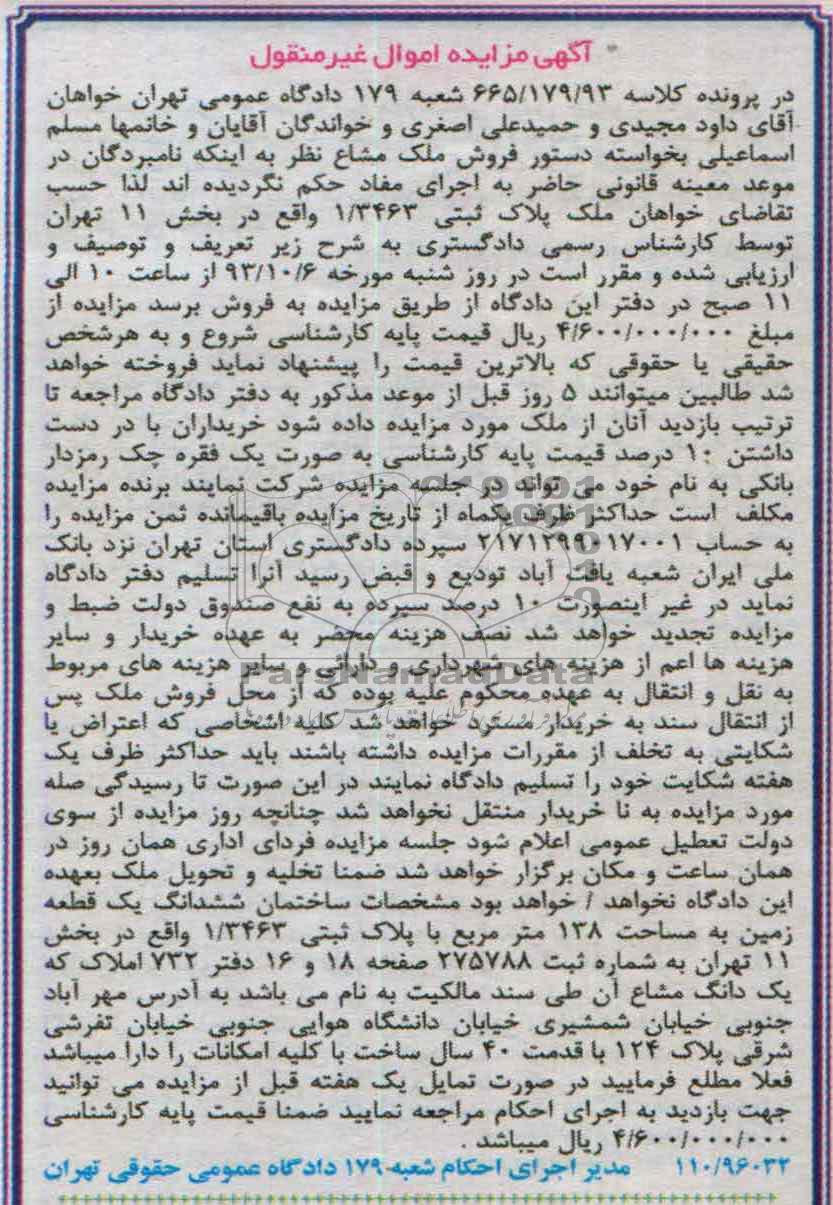 آگهی مزایده اموال غیرمنقول
در پرونده کلاسه ۶۶۵/۱۷۹/۹۳ شعبه ۱۷۹ دادگاه عمومی تهران خواهان
آقای داود مجیدی و حمیدعلی اصغری و خواندگان آقایان و خانمها مسلم
اسماعیلی بخواسته دستور فروش ملک مشاع نظر به اینکه نامبردگان در
موعد معینه قانونی حاضر به اجرای مفاد حکم نگردیده اند لذا حسب
تقاضای خواهان ملک پلاک ثبتی ۱/۳۴۶۳ واقع در بخش ۱۱ تهران
توسط کارشناس رسمی دادگستری به شرح زیر تعریف و توصیف و
ارزیابی شده و مقرر است در روز شنبه مورخه ۹۳/۱۰/۶ از ساعت ۱۰ الی
۱۱ صبح در دفتر این دادگاه از طریق مزایده به فروش برسد مزایده از
مبلغ ۴/۶۰۰/۰۰۰/۰۰۰ ریال قیمت پایه کارشناسی شروع و به هرشخص
حقیقی یا حقوقی که بالاترین قیمت را پیشنهاد نماید فروخته خواهد
شد طالبین میتوانند ۵ روز قبل از موعد مذکور به دفتر دادگاه مراجعه تا
ترتیب بازدید آنان از ملک مورد مزایده داده شود خریداران با در دست
داشتن ۱۰ درصد قیمت پایه کارشناسی به صورت یک فقره چک رمزدار
بانکی به نام خود می تواند در جلسه مزایده شرکت نمایند برنده مزایده
مکلف است حداکثر ظرف یکماه از تاریخ مزایده باقیمانده ثمن مزایده را
به حساب ۲۱۷۱۲۹۹۰۱۷۰۰۱ سپرده دادگستری استان تهران نزد بانک
ملی ایران شعبه یافت آباد تودیع و قبض رسید آنرا تسلیم دفتر دادگاه
نماید در غیر اینصورت ۱۰ درصد سپرده به نفع صندوق دولت ضبط و
مزایده تجدید خواهد شد نصف هزینه محضر به عهده خریدار و سایر
هزینه ها اعم از هزینه های شهرداری و دارائی و سایر هزینه های مربوط
ParsNamadData
به نقل و انتقال به عهده محکوم علیه بوده که از محل فروش ملک پس
از انتقال سند به خریدار مسترد خواهد شد کلیه اشخاصی که اعتراض یا
شکایتی به تخلف از مقررات مزایده داشته باشند باید حداکثر ظرف یک
هفته شکایت خود را تسلیم دادگاه نمایند در این صورت تا رسیدگی صله
مورد مزایده به نا خریدار منتقل نخواهد شد چنانچه روز مزایده از سوی
دولت تعطیل عمومی اعلام شود جلسه مزایده فردای اداری همان روز در
همان ساعت و مکان برگزار خواهد شد ضمنا تخلیه و تحویل ملک بعهده
این دادگاه نخواهد / خواهد بود مشخصات ساختمان ششدانگ یک قطعه
زمین به مساحت ۱۳۸ متر مربع با پلاک ثبتی ۱/۳۴۶۳ واقع در بخش
۱۱ تهران به شماره ثبت ۲۷۵۷۸۸ صفحه ۱۸ و ۱۶ دفتر ۷۳۲ املاک که
یک دانگ مشاع آن طی سند مالکیت به نام می باشد به آدرس مهر آباد
جنوبی خیابان شمشیری خیابان دانشگاه هوایی جنوبی خیابان تفرشی
شرقی پلاک ۱۲۴ با قدمت ۴۰ سال ساخت با کلیه امکانات را دارا میباشد
فعلا مطلع فرمایید در صورت تمایل یک هفته قبل از مزایده می توانید
جهت بازدید به اجرای احکام مراجعه نمایید ضمنا قیمت پایه کارشناسی
۴/۶۰۰/۰۰۰/۰۰۰ ریال میباشد .
۱۱۰/۹۶۰۳۲ مدیر اجرای احکام شعبه ۱۷۹ دادگاه عمومی حقوقی تهران